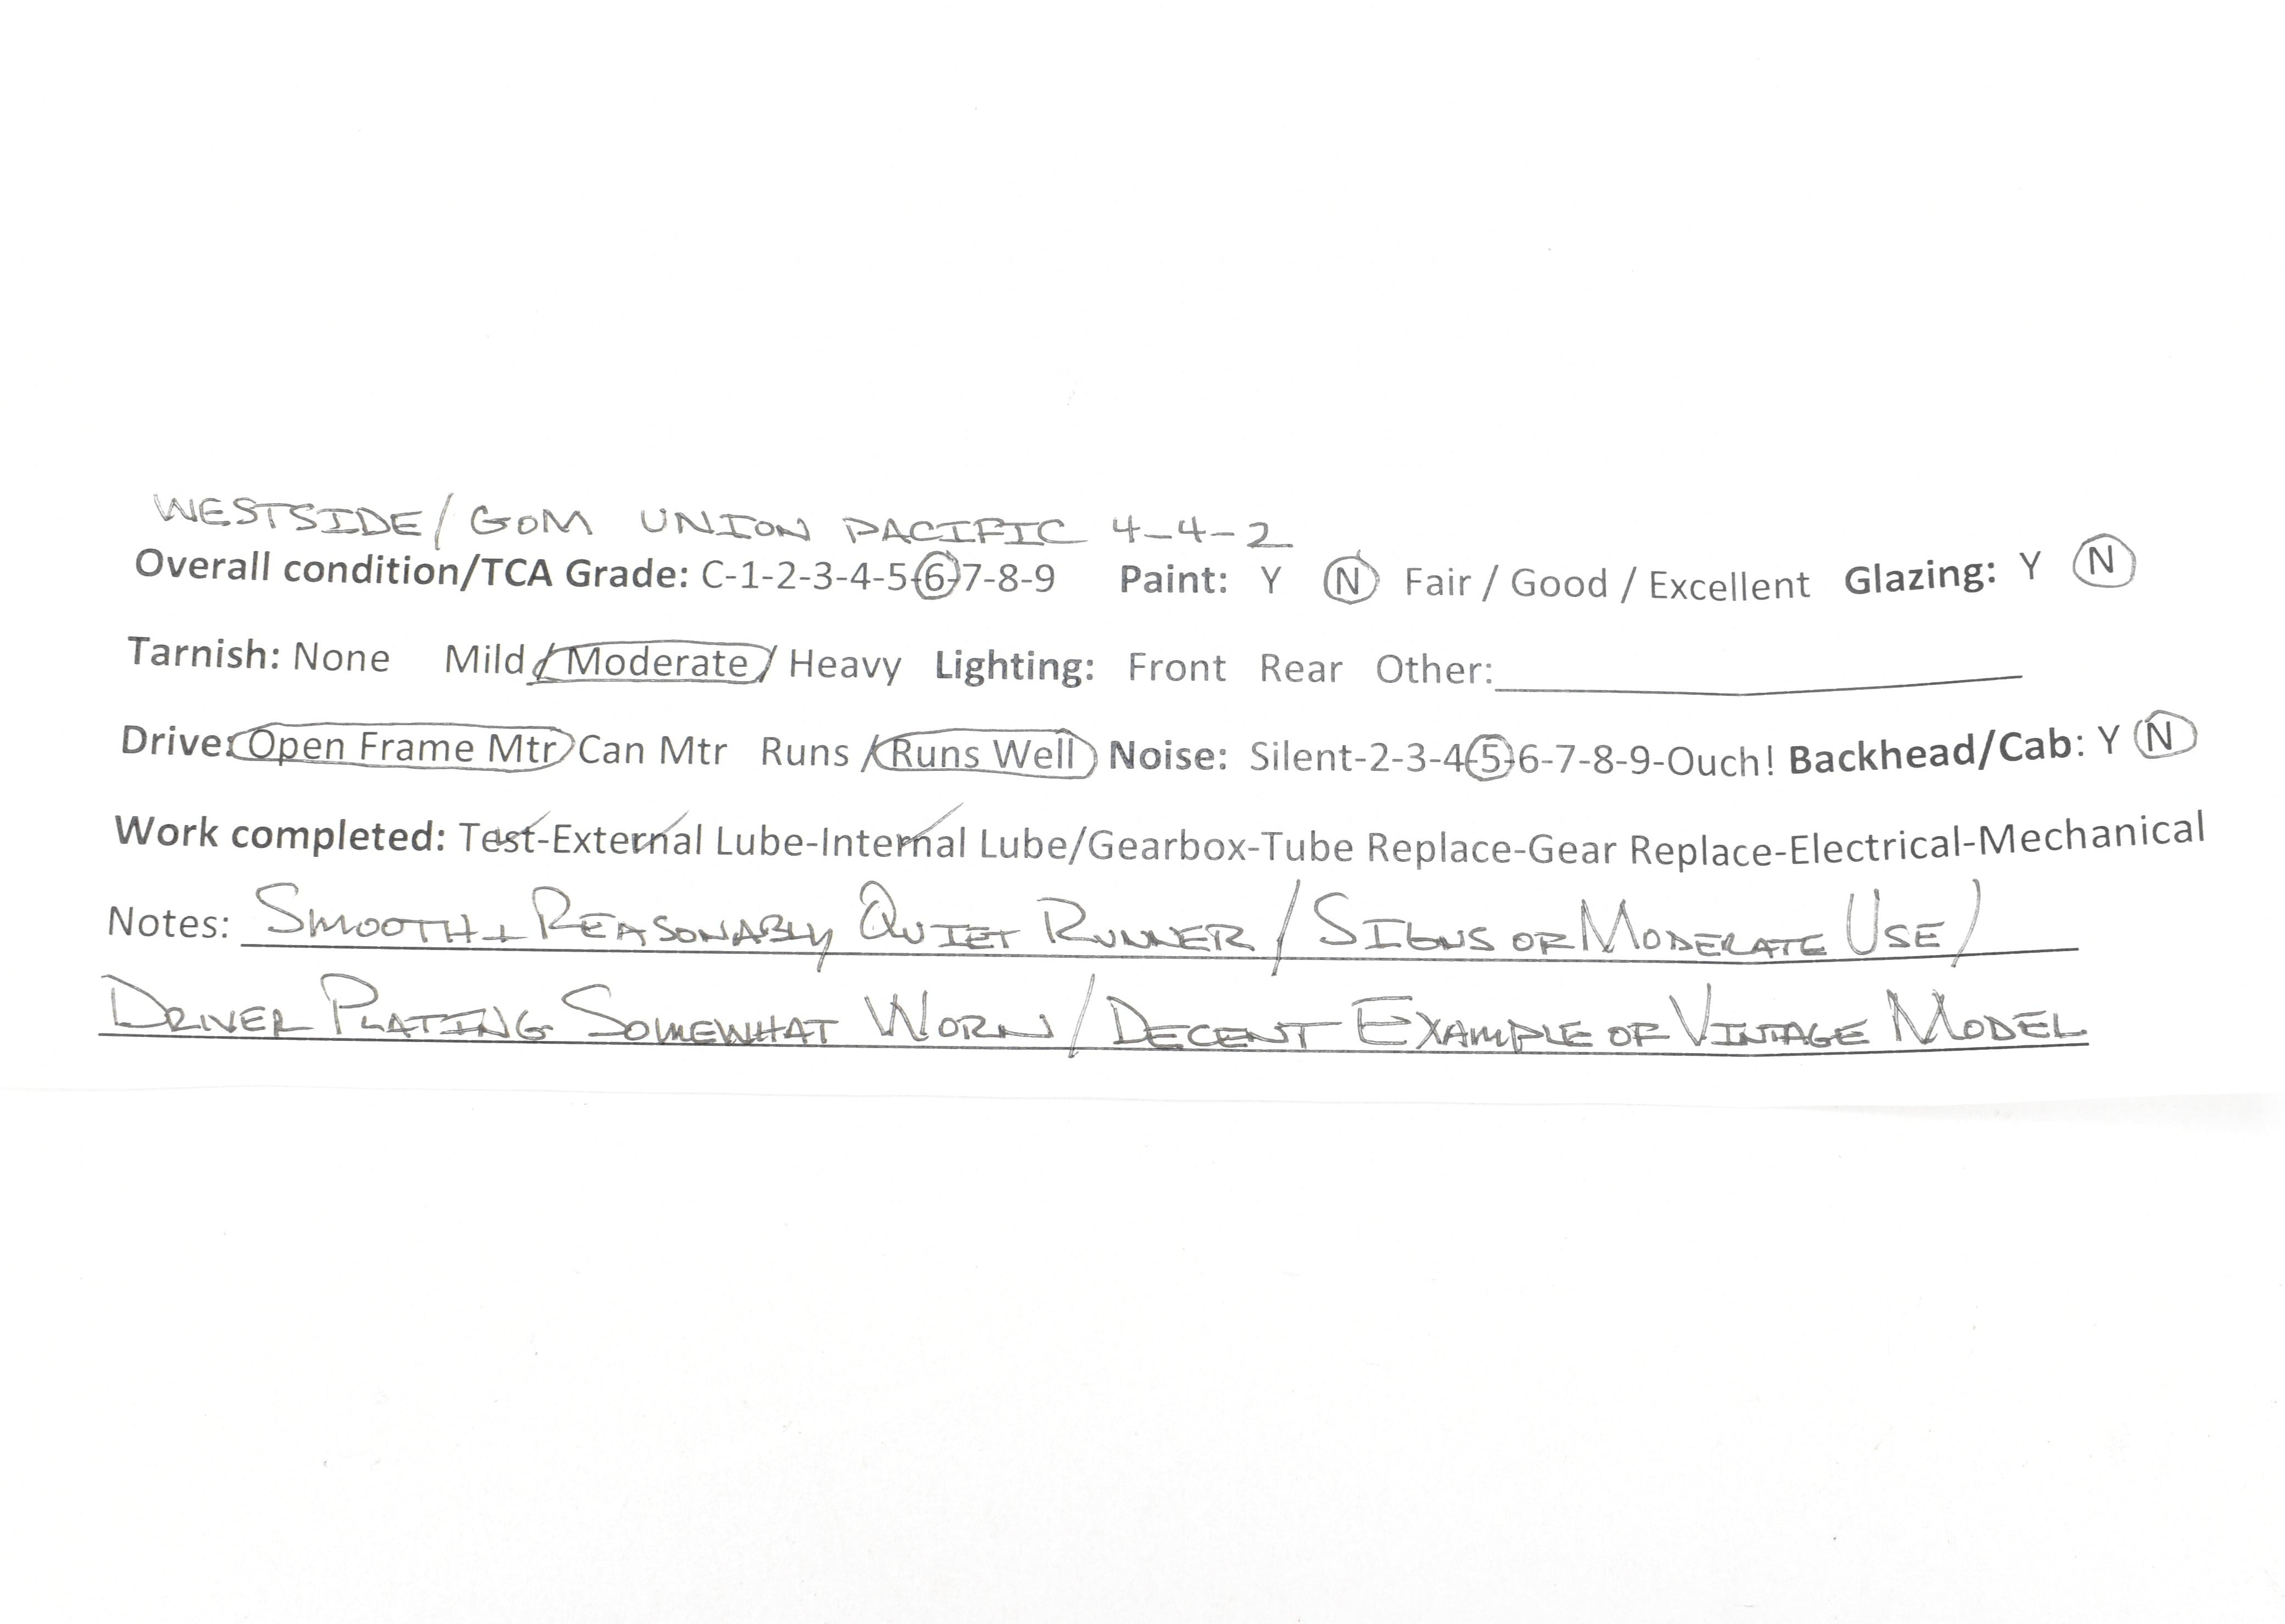 WESTSIDE/GOM UNION PACIFIC 4-4-2
Overall condition/TCA Grade: C-1-2-3-4-5-6-7-8-9 Paint: Y N Fair / Good / Excellent Glazing: Y N
Tarnish: None Mild / Moderate / Heavy Lighting: Front Rear Other:
Drive: Open Frame Mtr Can Mtr Runs / Runs Well Noise: Silent-2-3-4-5-6-7-8-9-Ouch! Backhead/Cab: Y N
Work completed: Test-External Lube-Internal Lube/Gearbox-Tube Replace-Gear Replace-Electrical-Mechanical
Notes: SMOOTH + REASONABLY QUIET RUNNER / SIGNS OF MODERATE USE /
DRIVER PLATING SOMEWHAT WORN / DECENT EXAMPLE OF VINTAGE MODEL